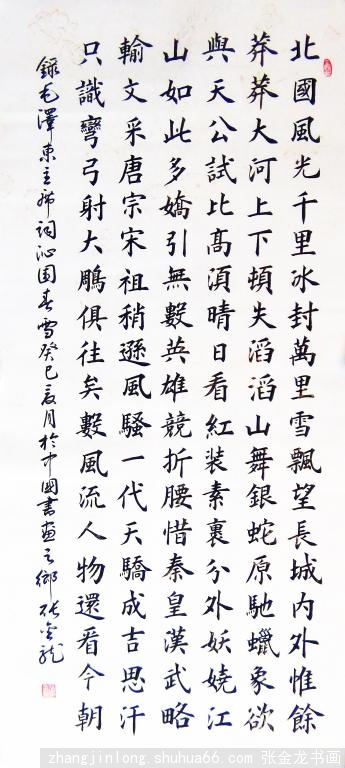 北國風光千里冰封萬里雪飄望長城內外惟餘
莽莽大河上下頓失滔滔山舞銀蛇原馳蠟象欲
與天公試比高須晴日看紅裝素裹分外妖嬈江
山如此多嬌引無數英雄競折腰惜秦皇漢武略
輸文采唐宗宋祖稍遜風騷一代天驕成吉思汗
只識彎弓射大鵰俱往矣數風流人物還看今朝
錄毛澤東主席詞沁園春雪癸巳夏月於中國書畫之鄉張金龍
zhangjinlong.shuhua66.com 张金龙书画